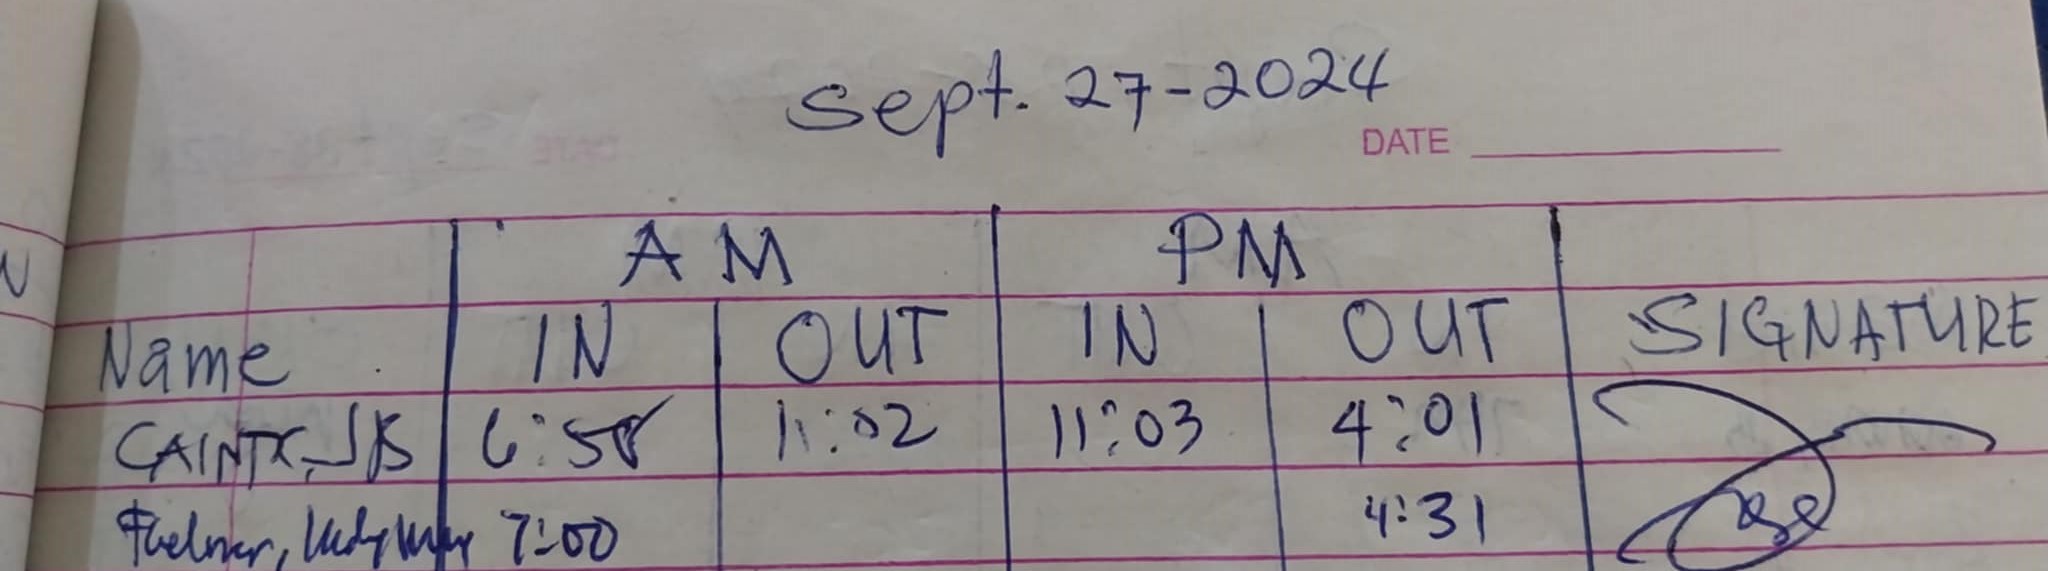 Sept. 27-2024
DATE
AM PM
Name IN OUT IN OUT SIGNATURE
6:58 11:02 11:03 4:01
7:00 4:31